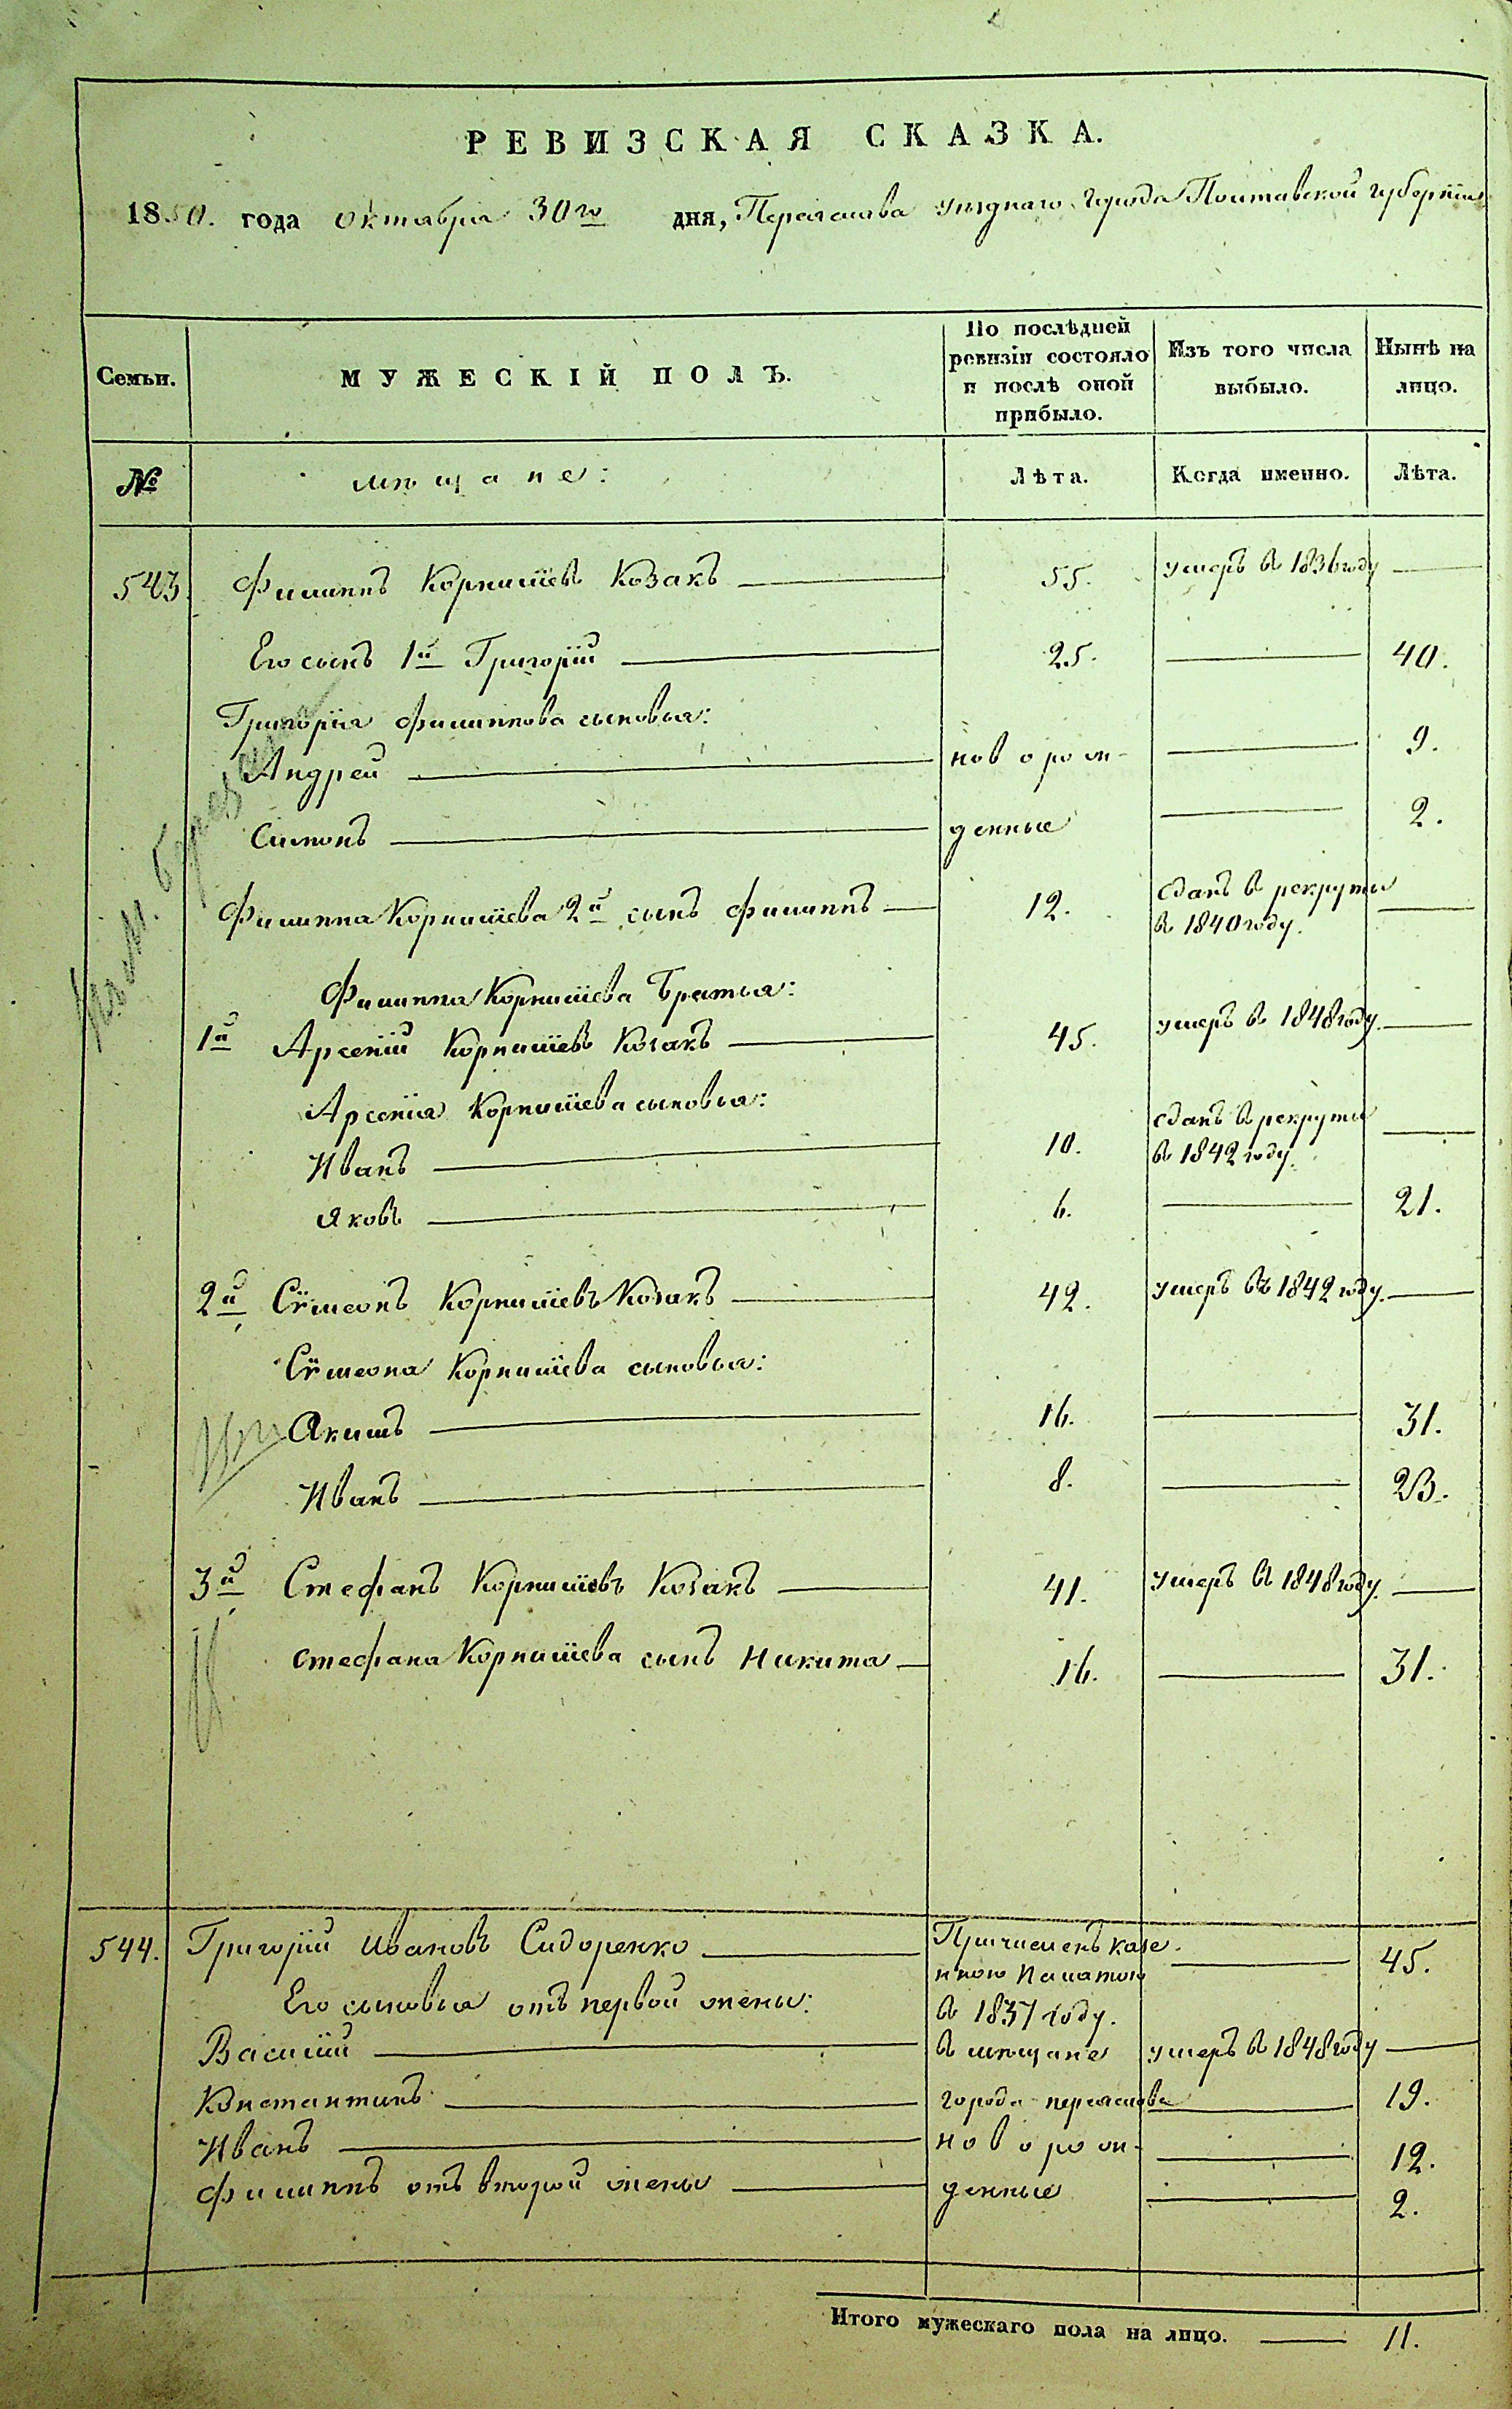 РЕВИЗСКАЯ СКАЗКА.
1850. года октября 30го дня, Переяслава уѣзднаго города Полтавской губерніи
Семьи. МУЖЕСКІЙ ПОЛЪ. По послѣдней ревизіи состояло и послѣ оной прибыло. Изъ того числа выбыло. Нынѣ на лицо.
№ мѣщане: Лѣта. Когда именно. Лѣта.
543. Филиппъ Корнилiевъ Козакъ 55. умеръ въ 1836 году
Его сынъ 1й Григорій 25. 40.
Григорія Филиппова сыновья:
Андрей новорож- 9.
Симонъ денные 2.
Филиппа Корнилiева 2й сынъ Филиппъ 12. сданъ в рекруты
в 1840 году.
Филиппа Корнилiева Братья:
1й Арсеній Корнилiевъ Козакъ 45. умеръ в 1848 году.
Арсенія Корнилiева сыновья:
Иванъ 10. сданъ в рекруты
в 1842 году.
Яковъ 6. 21.
2й Сѵмеонъ Корнилiевъ Козакъ 42. умеръ въ 1842 году.
Сѵмеона Корнилiева сыновья:
Акимъ 16. 31.
Иванъ 8. 23.
3й Стефанъ Корнилiевъ Козакъ 41. умеръ въ 1848 году.
Стефана Корнилiева сынъ Никита 16. 31.
544. Григорій Ивановъ Сидоренко Причисленъ казе- 45.
нною Палатою
Его сыновья отъ первой жены: в 1837 году.
Василій в мѣщане умеръ в 1848 году
Константинъ города переяслава 19.
Иванъ новорож- 12.
Филиппъ отъ второй жены денные 2.
Итого мужескаго пола на лицо. 11.